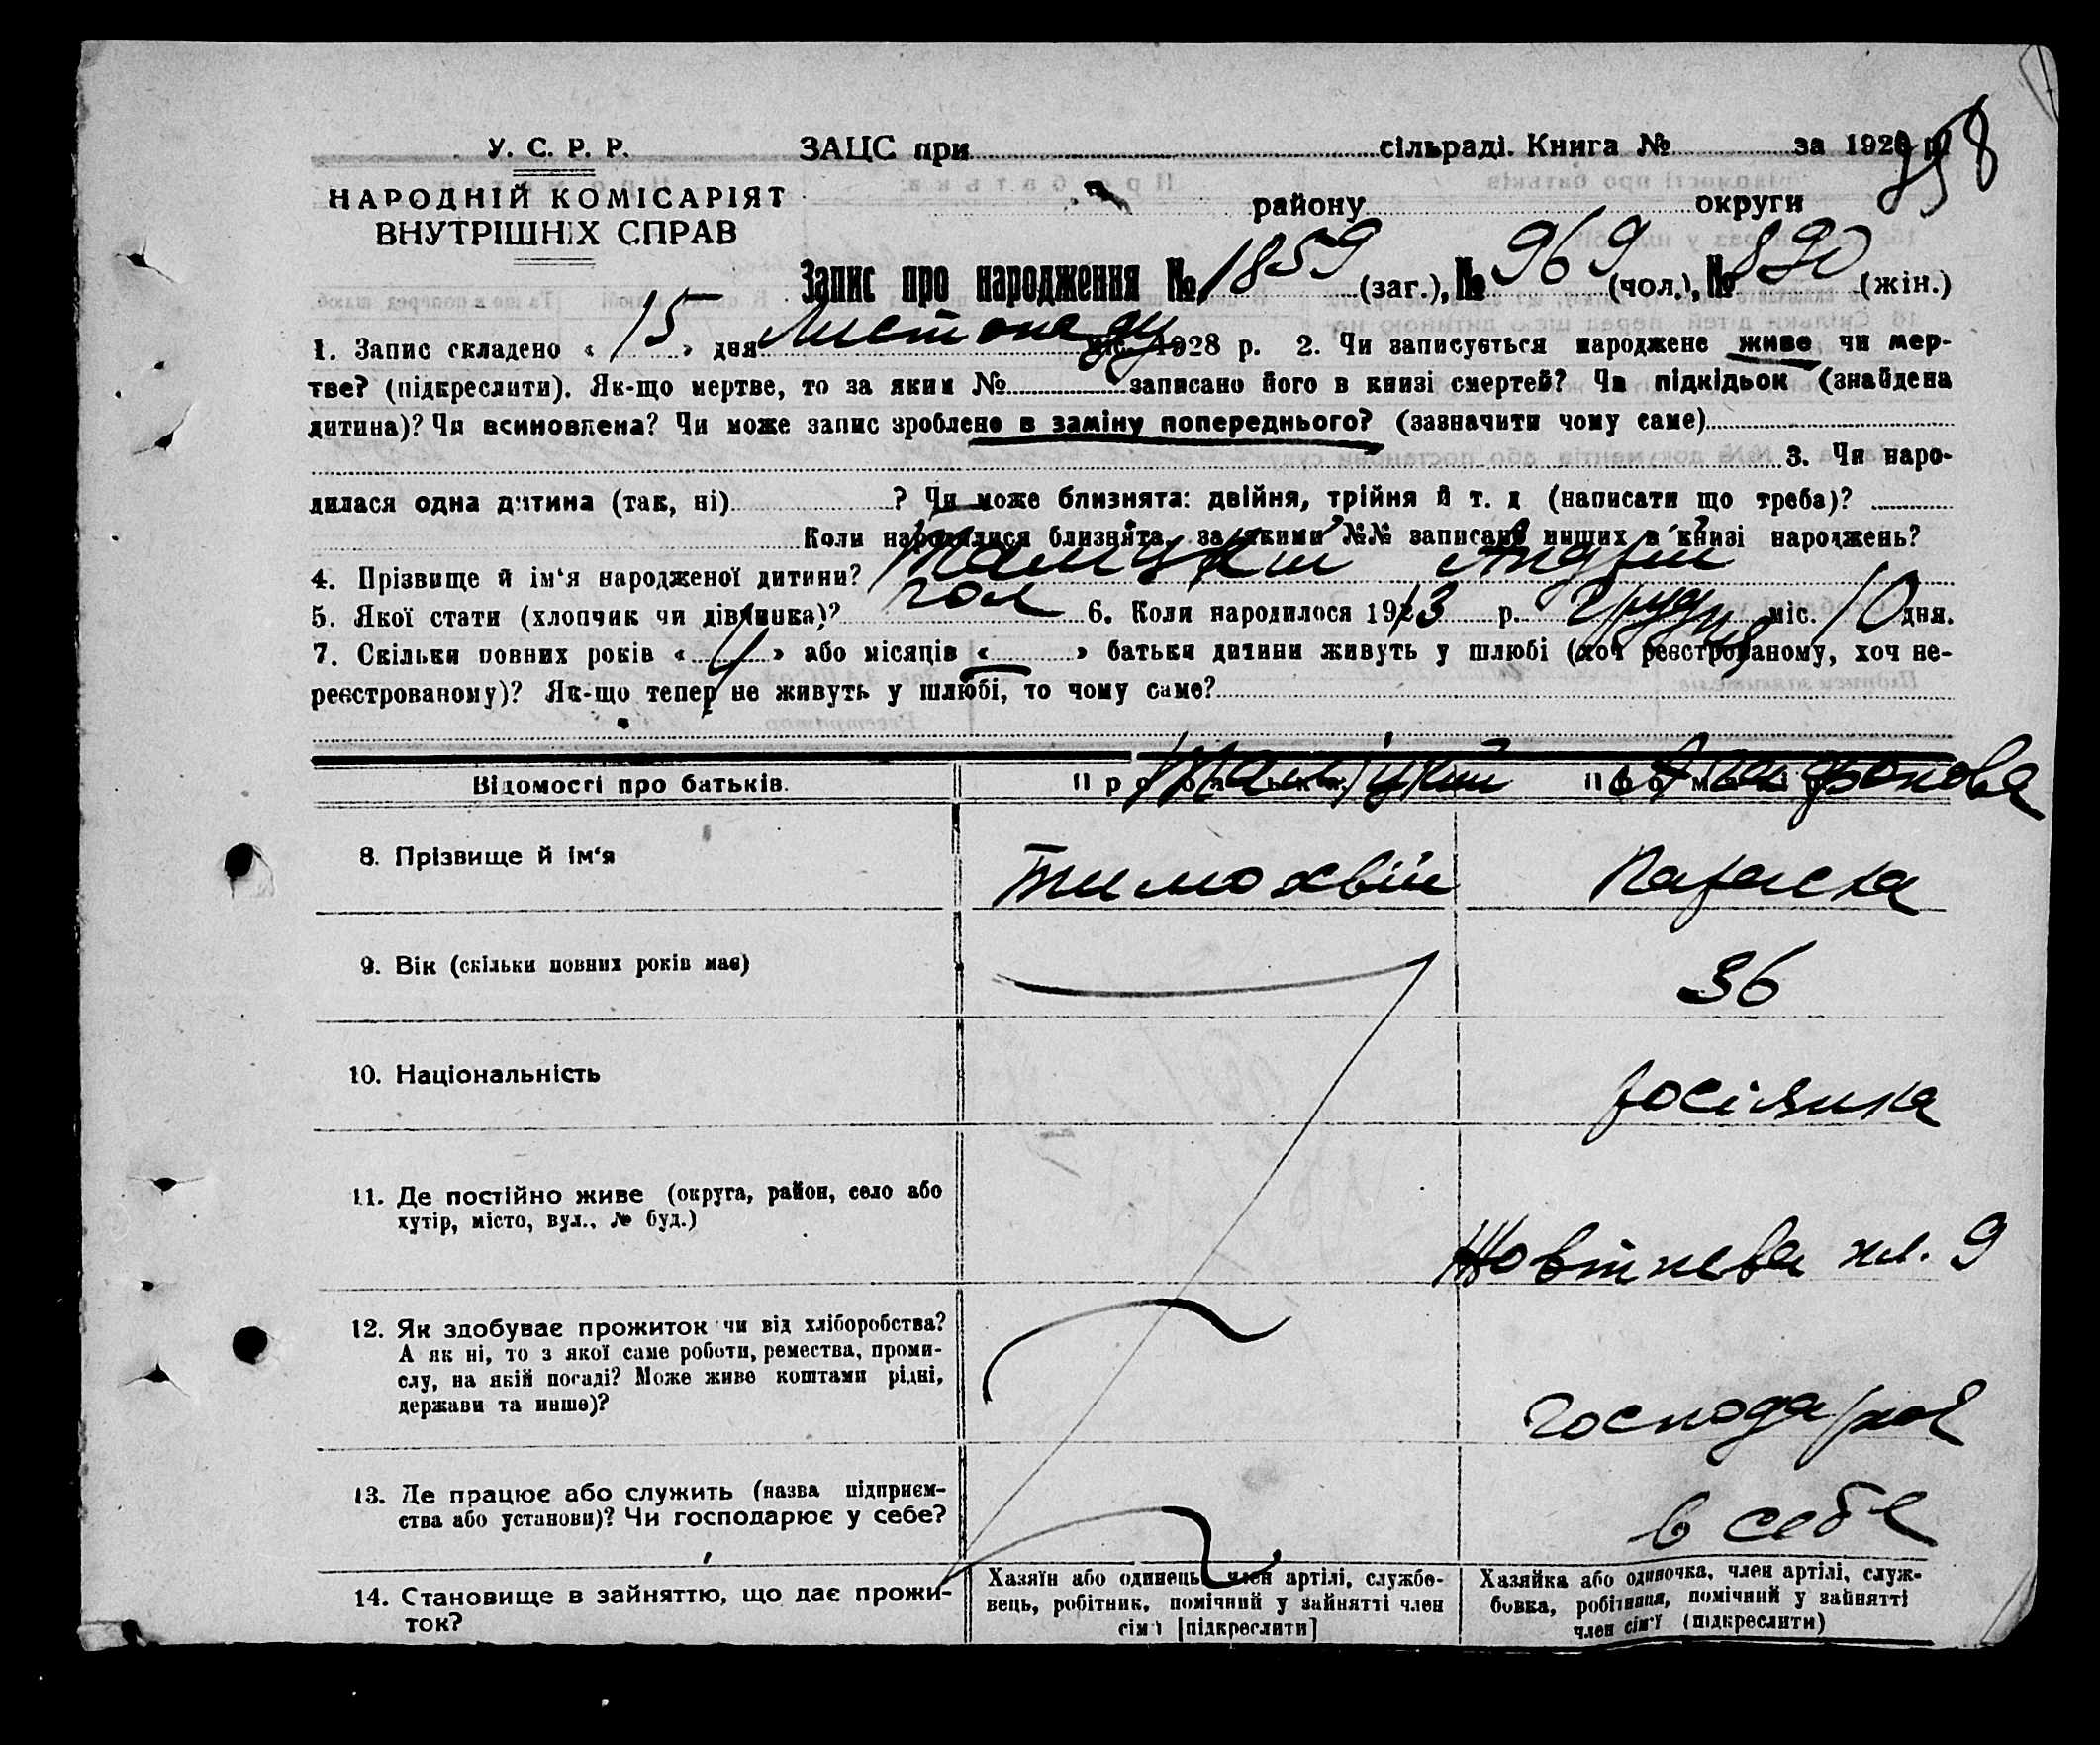 358
У. С. Р. Р.
ЗАЦС при сільраді. Книга № за 1928 р.
НАРОДНІЙ КОМІСАРІЯТ
ВНУТРІШНІХ СПРАВ
району округи
Запис про народження № 1859 (заг.), № 969 (чол.), № 890 (жін.)
1. Запис складено « 15 » дня Листопаду міс. 1928 р. 2. Чи записується народжене живе чи мер-
тве? (підкреслити). Як-що мертве, то за яким № записано його в книзі смертей? Чи підкідьок (знайдена
дитина)? Чи всиновлена? Чи може запис зроблено в заміну попереднього? (зазначити чому саме)
3. Чи наро-
дилася одна дитина (так, ні) ? Чи може близнята: двійня, трійня й т. д (написати що треба)?
Коли народилися близнята, за якими №№ записано инших в книзі народжень?
4. Прізвище й ім‘я народженої дитини? Андрій
5. Якої стати (хлопчик чи дівчинка)? чол 6. Коли народилося 1913 р. Грудня міс. 10 дня.
7. Скільки повних років « » або місяців « » батьки дитини живуть у шлюбі (хоч реєстрованому, хоч не-
реєстрованому)? Як-що тепер не живуть у шлюбі, то чому саме?
Відомості про батьків. Про батька Про матір
8. Прізвище й ім‘я Тимохвій Параска
9. Вік (скільки повних років має) 36
10. Національність росіянка
11. Де постійно живе (округа, район, село або
хутір, місто, вул., № буд.)
Жовтнева пл. 9
12. Як здобуває прожиток чи від хліборобства?
А як ні, то з якої саме роботи, ремества, проми-
слу, на якій посаді? Може живе коштами рідні,
держави та инше)?
господарює
13. Де працює або служить (назва підприєм-
ства або установи)? Чи господарює у себе?
в себе
14. Становище в зайняттю, що дає прожи-
ток?
Хазяїн або одинець, член артілі, службо-
вець, робітник, помічний у зайнятті член
сім‘ї [підкреслити]
Хазяйка або одиночка, член артілі, служ-
бовка, робітниця, помічний у зайнятті
член сім‘ї (підкреслити)